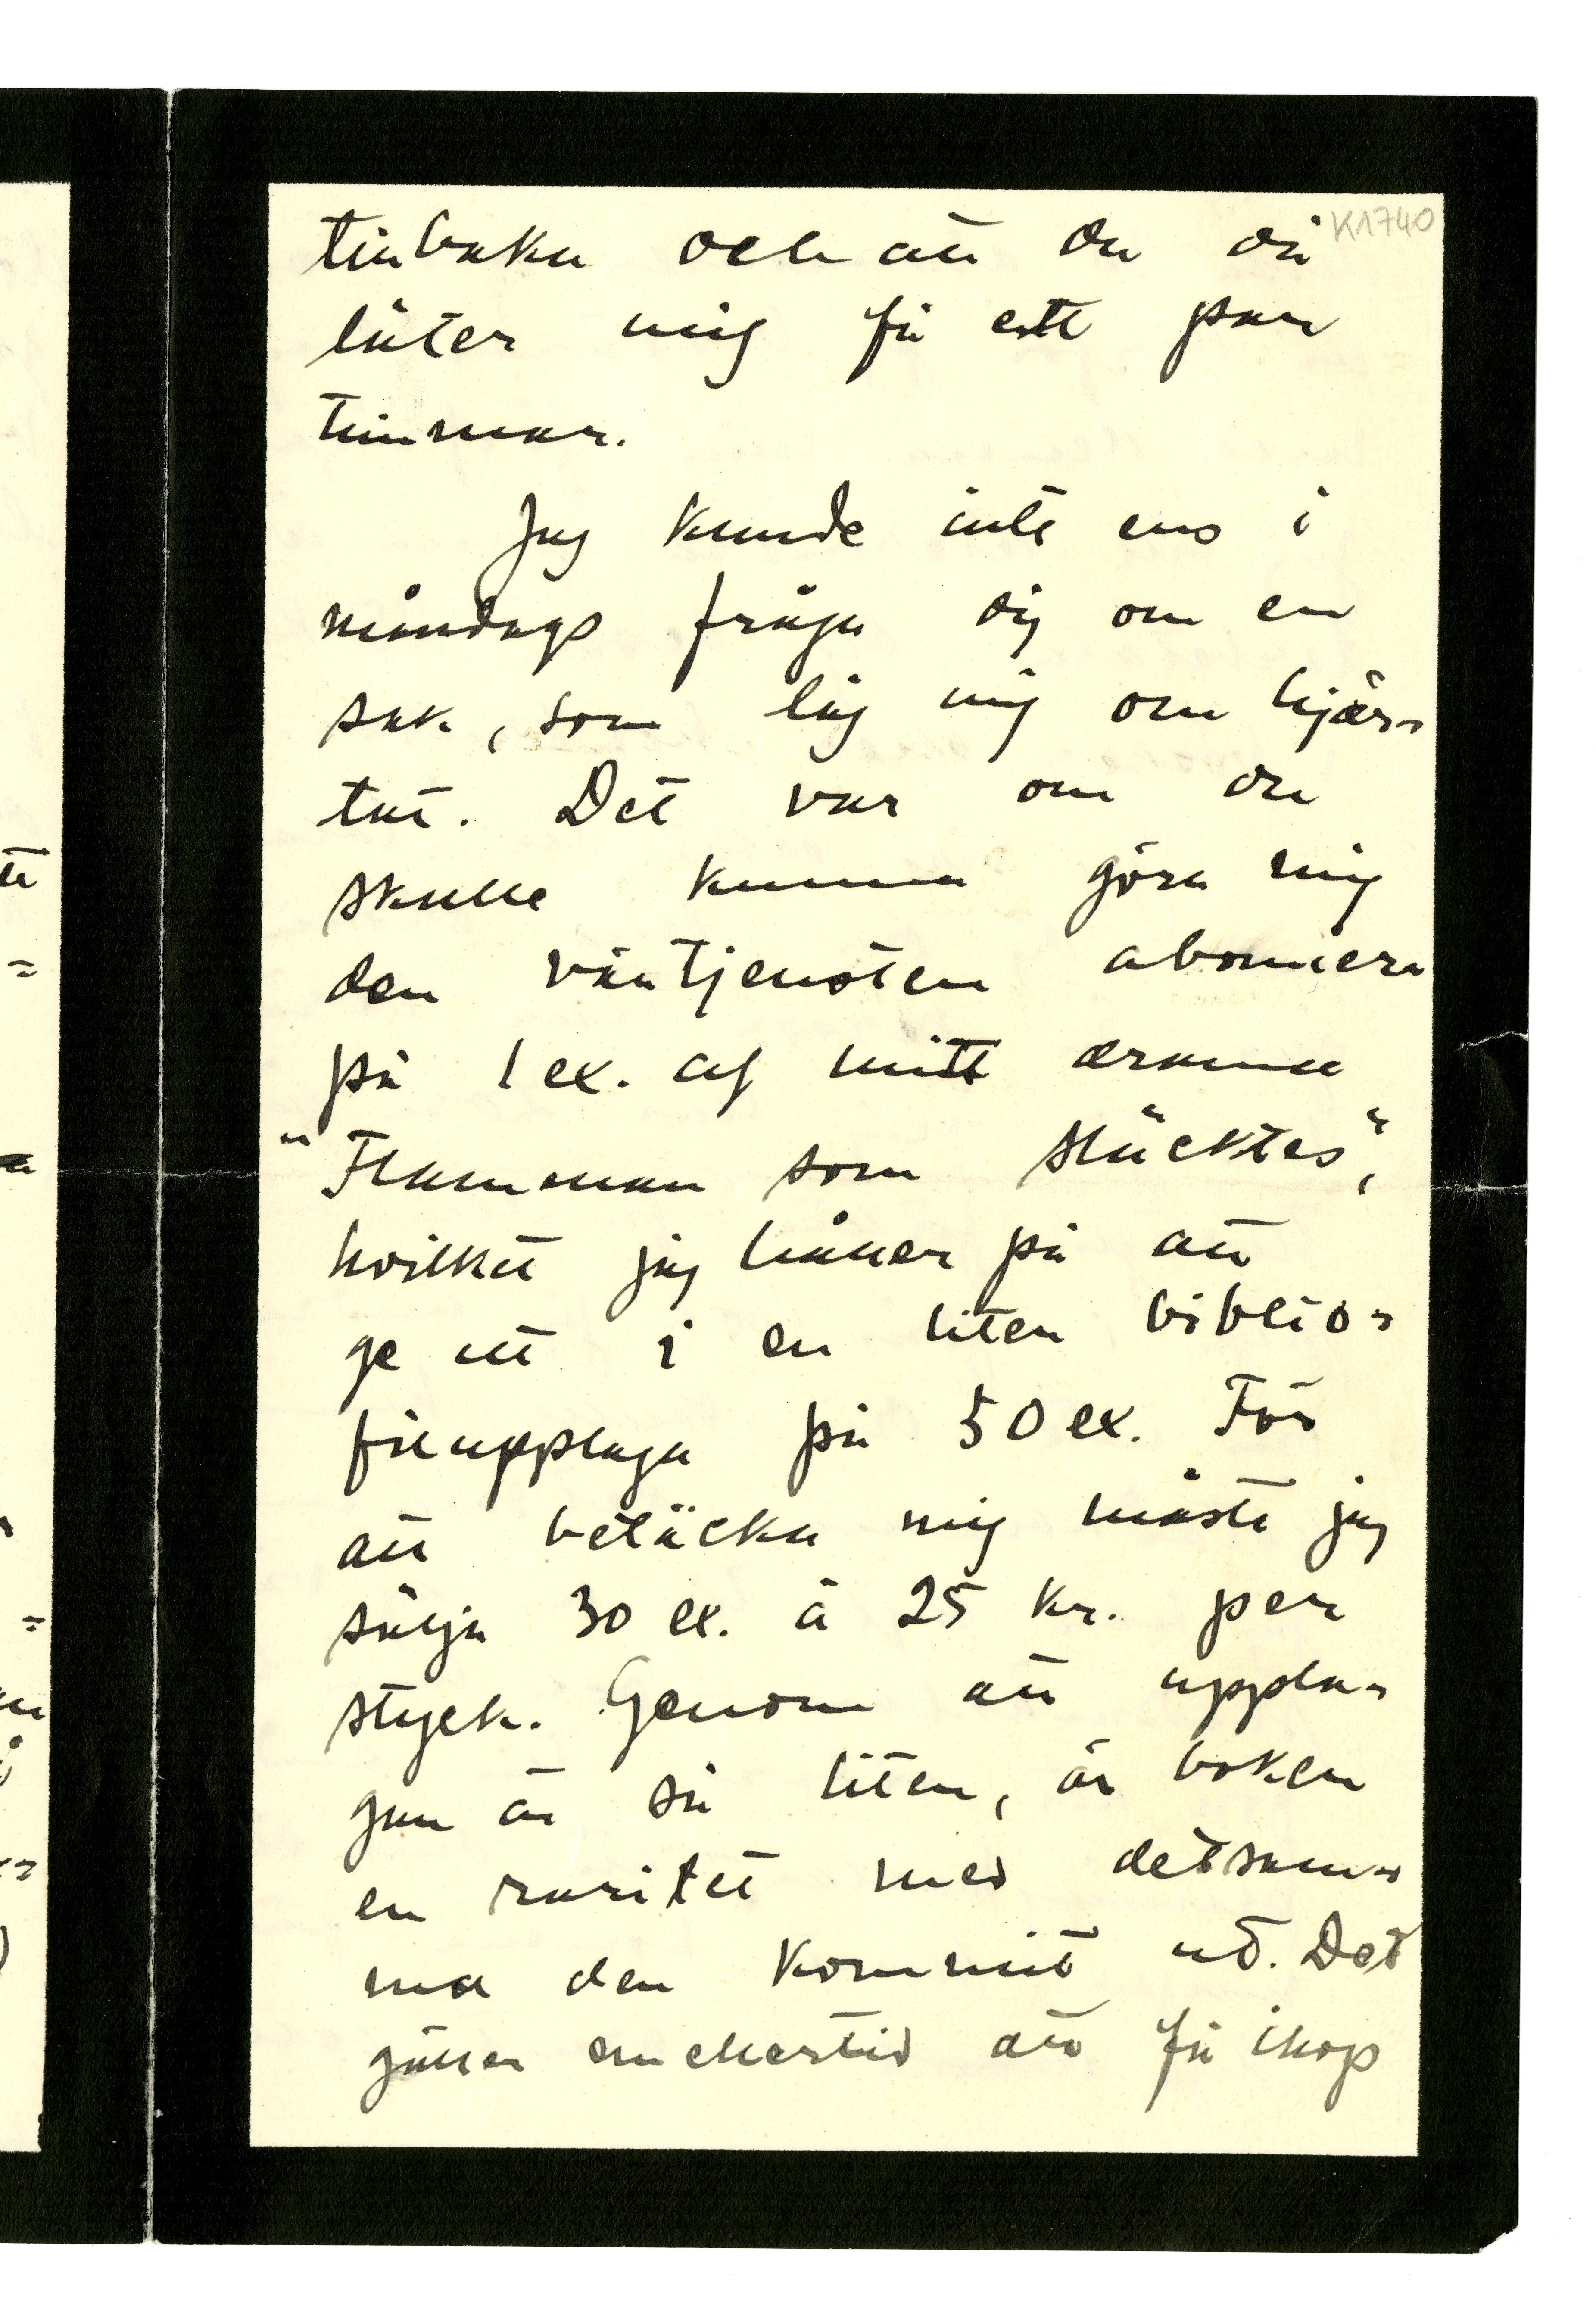 K1740
tillbaka och att du då
låter mig få ett par
timmar.
Jag kunde inte ens i
måndags fråga dig om en
sak, som låg mig om hjär=
tat. Det var om du
skulle kunna göra mig
den väntjensten abonnera
på 1 ex. af mitt drama
"Flamman som släcktes",
hvilket jag håller på att
ge ut i en liten biblio=
filupplaga på 50 ex. För
att betäcka mig måste jag
sälja 30 ex. à 25 kr. per
styck. Genom att uppla=
gan är så liten, är boken
en raritet med detsam=
ma den kommit ut. Det
gäller emellertid att få ihop